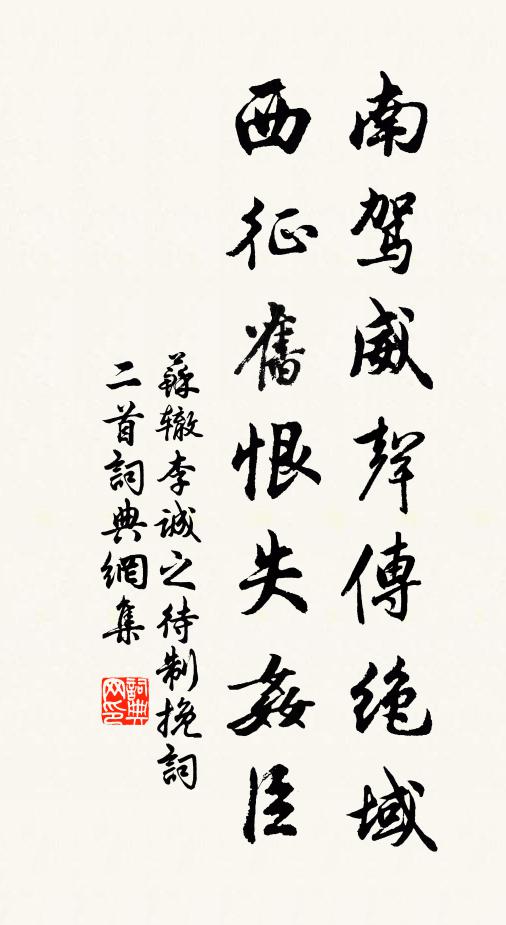 南駕威聲傳絕域
西征舊恨失姦臣
蘇轍李誠之待制挽詞
二首詞典網集
詞典
网印